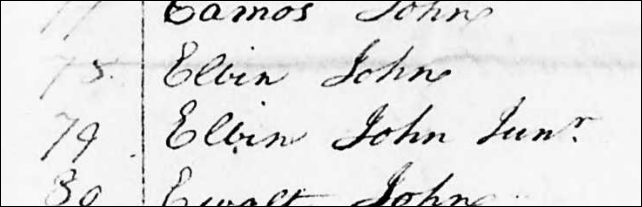 77 Eamos John
78 Elvin John
79 Elvin John Junr.
80 Ewalt John